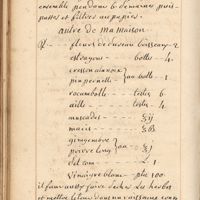 ensemble pendant 6 demaines puis
passes et filtres au papier.
autre de ma maison
fleurs de sureau boisseaux 2
estragon botte 4
cresson alenois
pinpernelle } aa botte 1
rocambolle testes 6
aille testes 4
muscades ℥ij
macis
gingembre
poivre long } aa
vinaigre blanc pte 100
il faut aussy faire secher les herbes
et mettre le tout dans un vaisseau